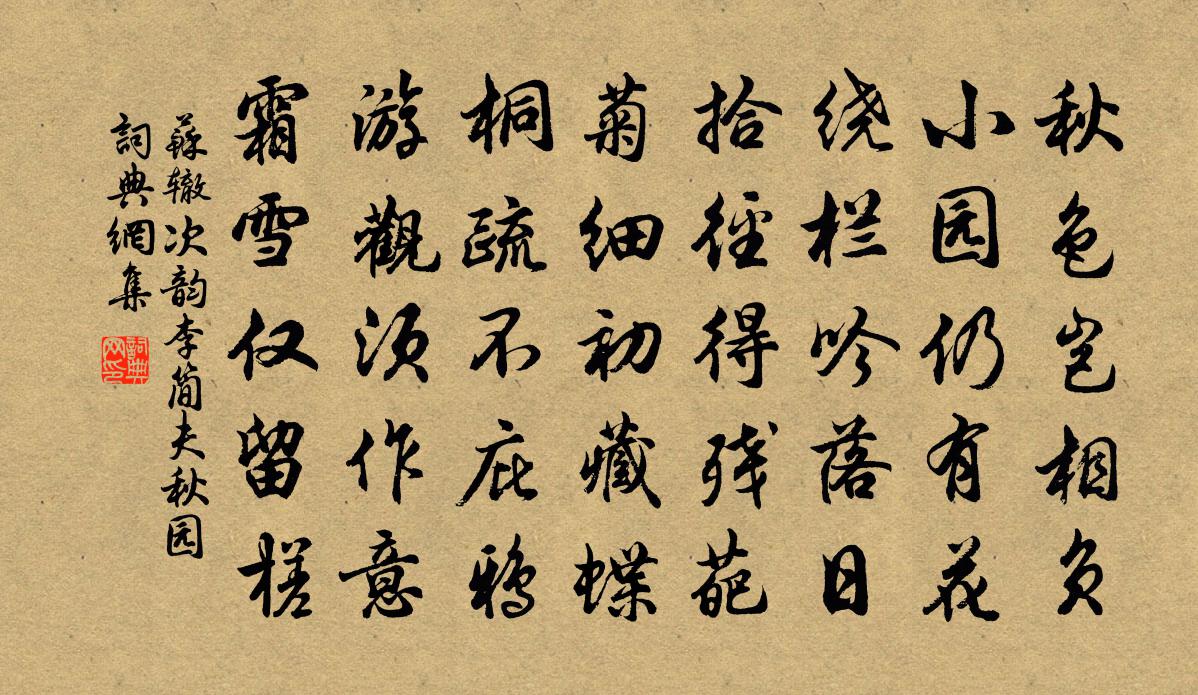 秋色岂相负
小园仍有花
绕栏吟落日
拾径得残葩
菊细初藏蝶
桐疏不庇鸦
游觀须作意
霜雪仅留槎
蘇辙次韵李简夫秋园
詞典網集
詞典网印